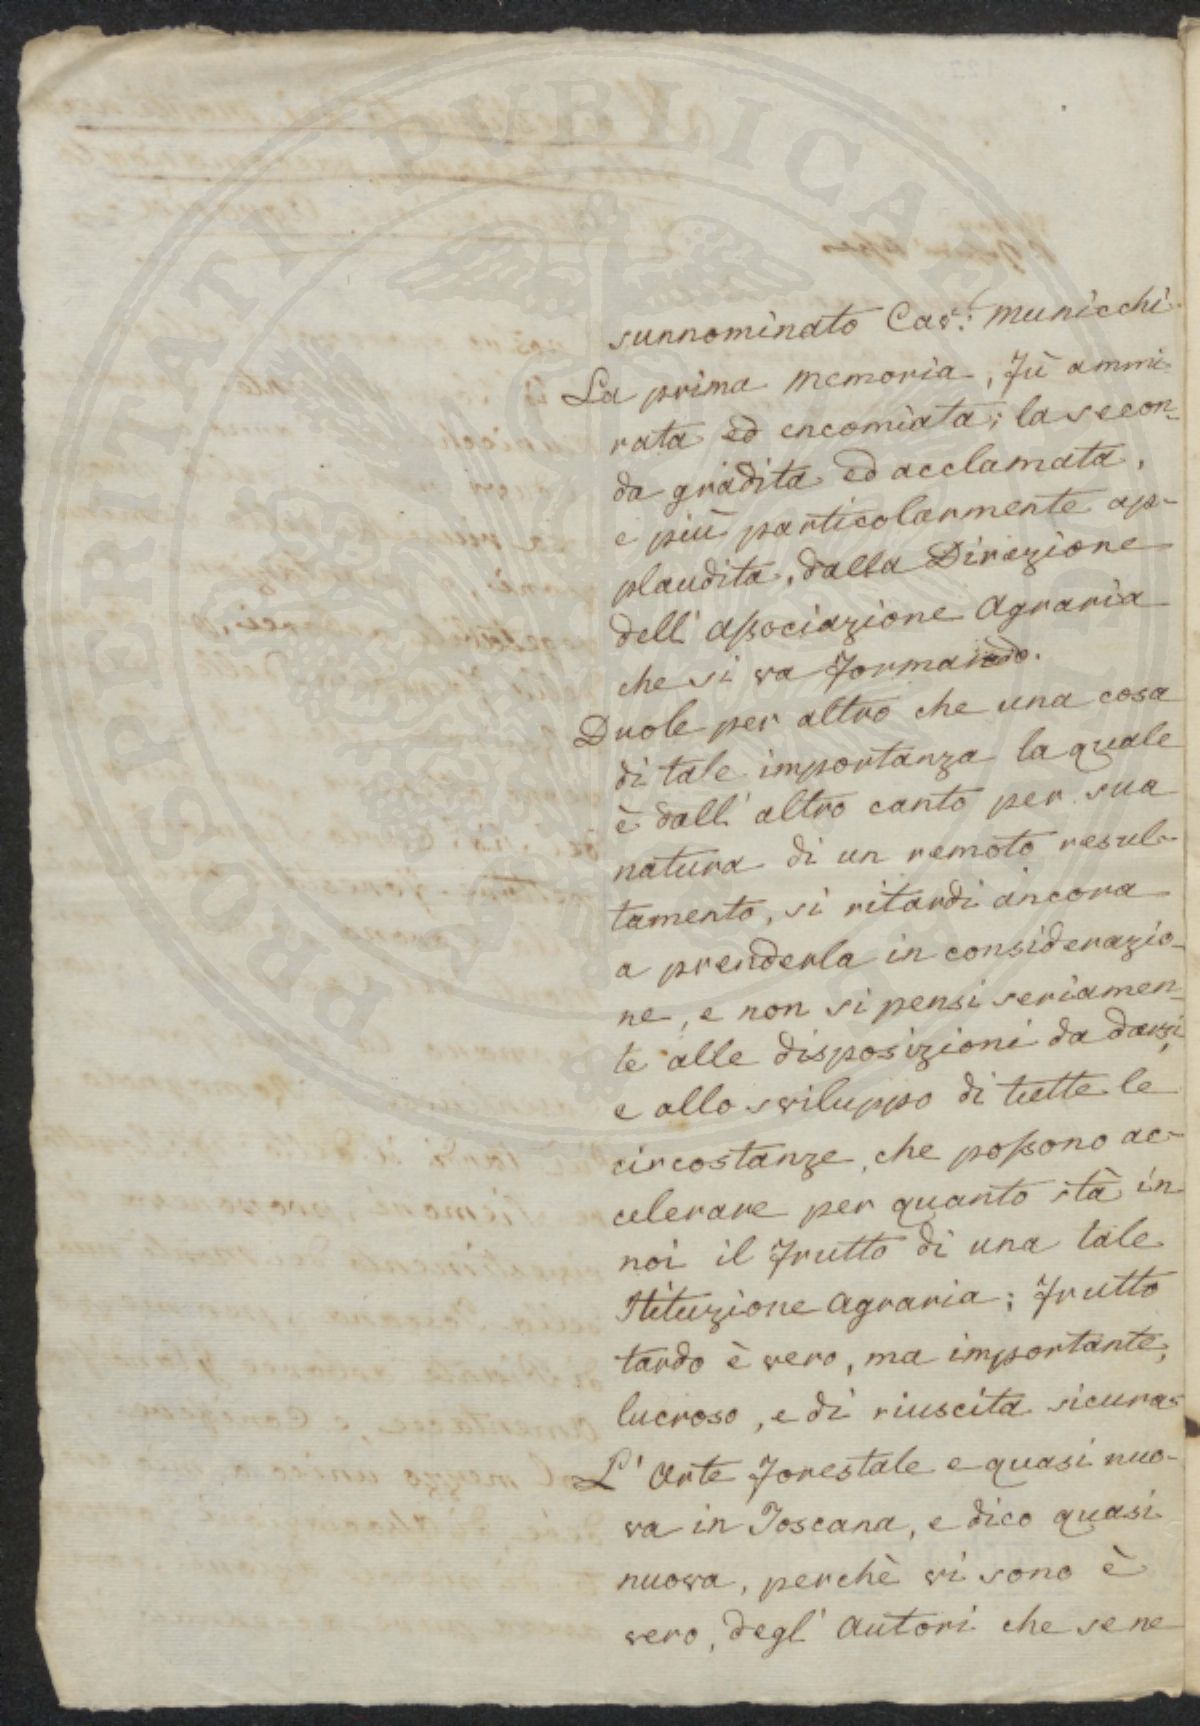 sunnominato Cav: Municchi.
La prima memoria, fù ammi-
rata ed encomiata; la secon-
da gradita ed acclamata,
e più particolarmente ap-
plaudita, dalla Direzione
dell' Associazione Agraria
che si va formando.
Duole per altro che una cosa
di tale importanza la quale
è dall' altro canto per sua
natura di un remoto resul-
tamento, si ritardi ancora
a prenderla in considerazio-
ne, e non si pensi seriamen-
te alle disposizioni da darsi,
e allo sviluppo di tutte le
circostanze, che possono ac-
celerare per quanto stà in
noi il frutto di una tale
Istituzione Agraria; frutto
tardo è vero, ma importante,
lucroso, e di riuscita sicura.
L' Arte forestale e quasi nuo-
va in Toscana, e dico quasi
nuova, perchè vi sono è
vero, degl' Autori che se ne
PROSPERITATI PUBLICAE AUGENDAE